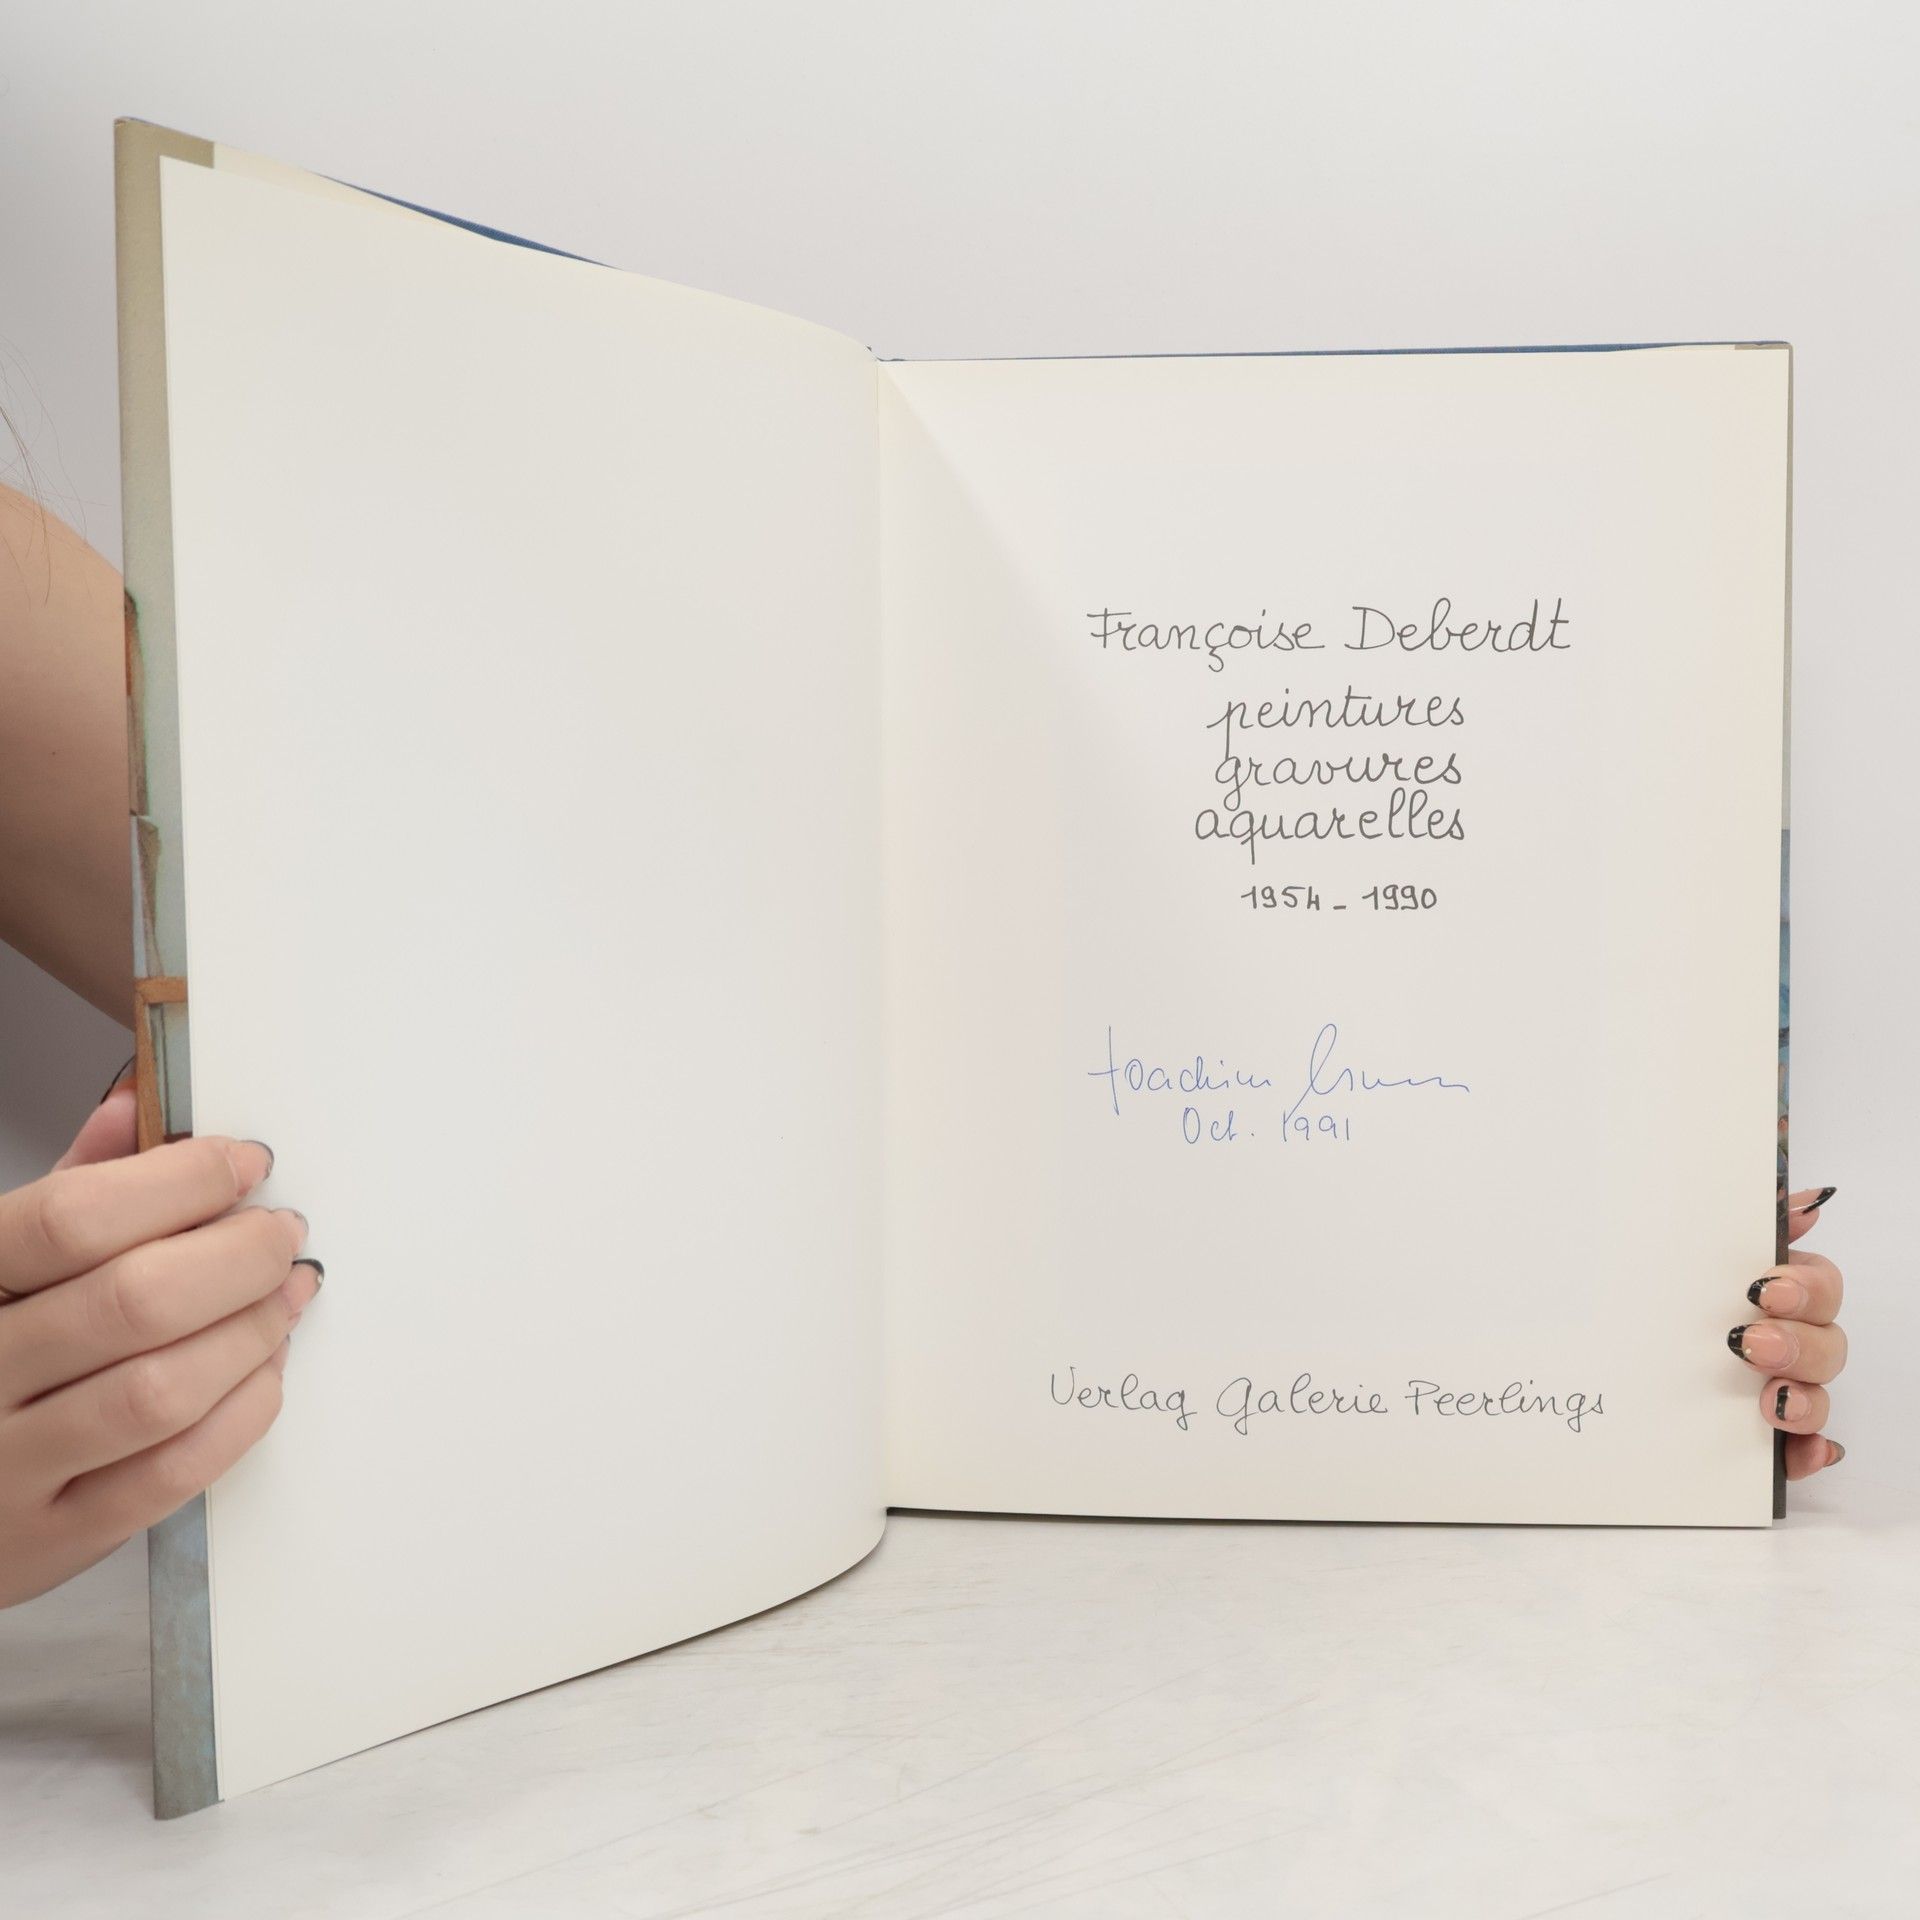 Françoise Deberdt
peintures
gravures
aquarelles
1954 - 1990
Joachim
Oct. 1991
Verlag Galerie Peerlings